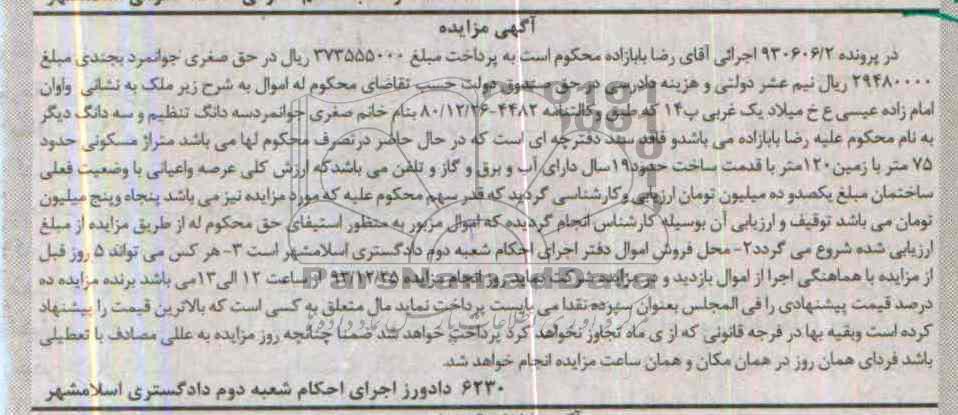 آگهی مزایده
در پرونده ۹۳۰۶۰۶/۲ اجرائی آقای رضا بابازاده محکوم است به پرداخت مبلغ ۳۷۳۵۵۵۰۰۰ ریال در حق صغری جوانمرد بجندی مبلغ
۲۹۴۸۰۰۰۰ ریال نیم عشر دولتی و هزینه دادرسی در حق صندوق دولت حسب تقاضای محکوم له اموال به شرح زیر ملک به نشانی واوان
امام زاده عیسی ع خ میلاد یک غربی پ۱۴ که طبق وکالتنامه ۴۴۸۲-۸۰/۱۲/۲۶ بنام خانم صغری جوانمردسه دانگ تنظیم و سه دانگ دیگر
به نام محکوم علیه رضا بابازاده می باشدو فاقد سند دفترچه ای است که در حال حاضر درتصرف محکوم لها می باشد متراژ مسکونی حدود
۷۵ متر با زمین۱۲۰متر با قدمت ساخت حدود۱۹سال دارای آب و برق و گاز و تلفن می باشدکه ارزش کلی عرصه واعیانی با وضعیت فعلی
ساختمان مبلغ یکصدو ده میلیون تومان ارزیابی وکارشناسی گردید که قدر سهم محکوم علیه که مورد مزایده نیز می باشد پنجاه وپنج میلیون
تومان می باشد توقیف و ارزیابی آن بوسیله کارشناس انجام گردیده که اموال مزبور به منظور استیفای حق محکوم له از طریق مزایده از مبلغ
ارزیابی شده شروع می گردد۲- محل فروش اموال دفتر اجرای احکام شعبه دوم دادگستری اسلامشهر است ۳- هر کس می تواند ۵ روز قبل
از مزایده با هماهنگی اجرا از اموال بازدید و در مزایده شرکت نماید روز انجام مزایده ۹۳/۱۲/۲۵ از ساعت ۱۲ الی۱۳می باشد برنده مزایده ده
درصد قیمت پیشنهادی را فی المجلس بعنوان سپرده نقدا می بایست پرداخت نماید مال متعلق به کسی است که بالاترین قیمت را پیشنهاد
کرده است وبقیه بها در فرجه قانونی که از ی ماه تجاوز نخواهد کرد پرداخت خواهد شد ضمنا چنانچه روز مزایده به عللی مصادف با تعطیلی
باشد فردای همان روز در همان مکان و همان ساعت مزایده انجام خواهد شد.
۶۲۳۰ دادورز اجرای احکام شعبه دوم دادگستری اسلامشهر
ParsNamadData